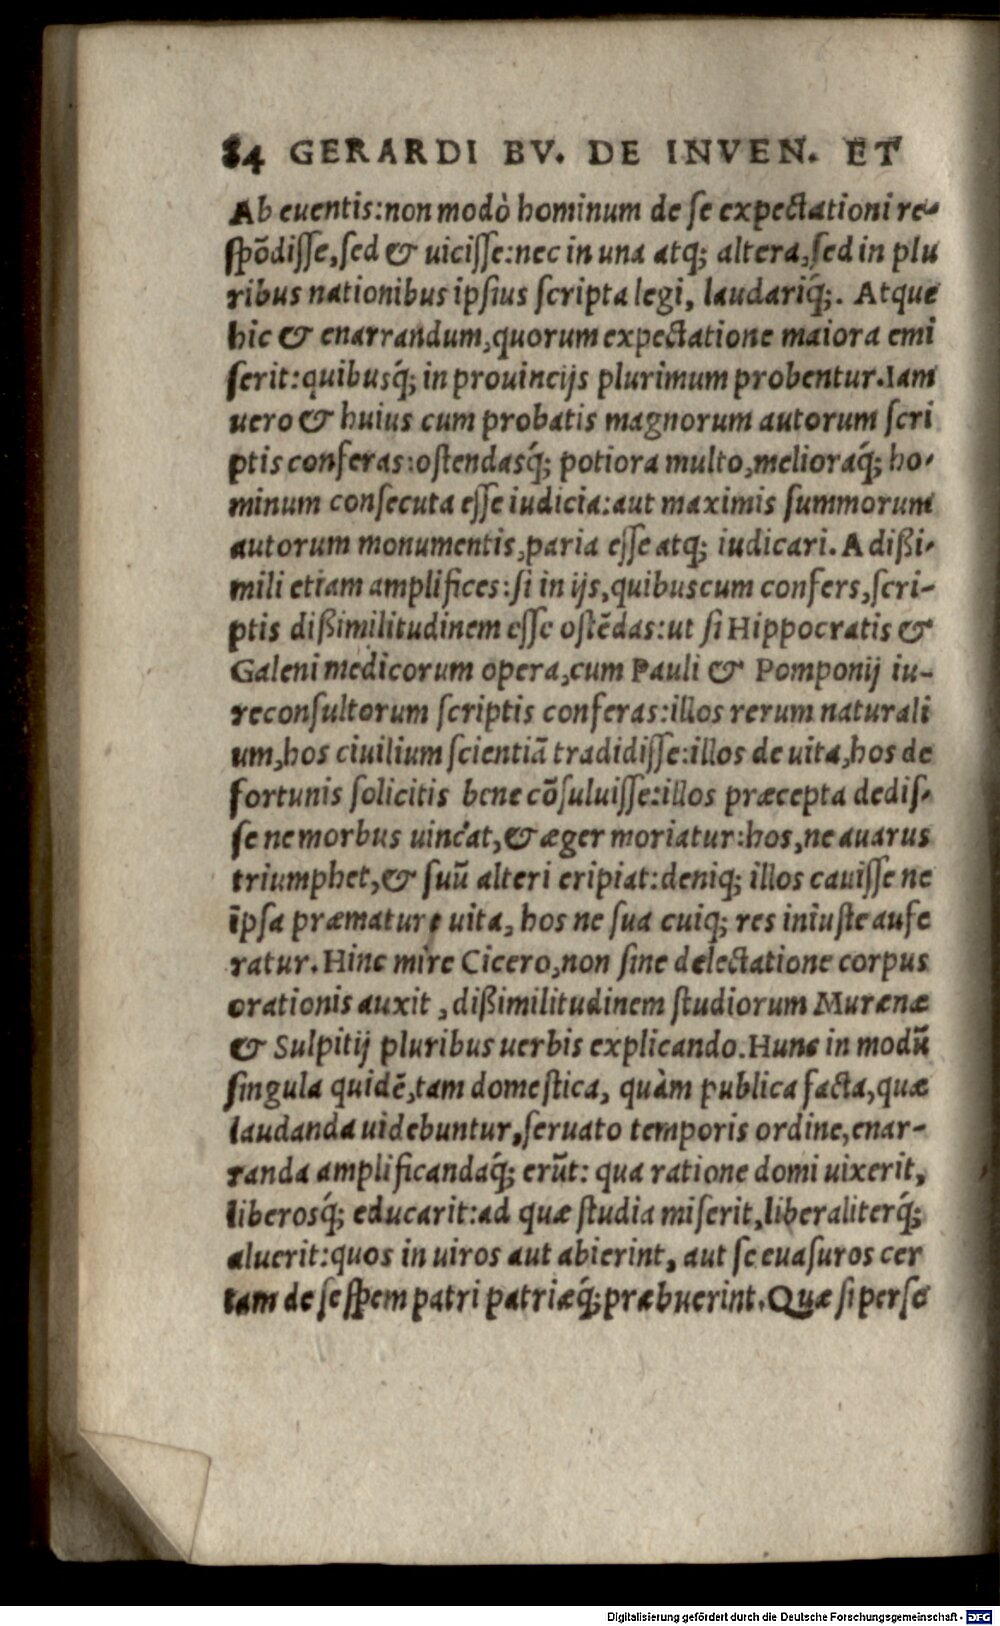 84 GERARDI BV. DE INVEN. ET
Ab euentis: non modò hominum de se expectationi re-
spõdisse, sed & uicisse: nec in una atq; altera, sed in plu
ribus nationibus ipsius scripta legi, laudariq́;. Atque
hic & enarrandum, quorum expectatione maiora emi
serit: quibusq́; in prouincijs plurimum probentur. Iam
uero & huius cum probatis magnorum autorum scri
ptis conferas: ostendasq́; potiora multo, melioraq́; ho-
minum consecuta esse iudicia: aut maximis summorum
autorum monumentis, paria esse atq; iudicari. A dißi-
mili etiam amplifices: si in ijs, quibuscum confers, scri-
ptis dißimilitudinem esse ostẽdas: ut si Hippocratis &
Galeni medicorum opera, cum Pauli & Pomponij iu-
reconsultorum scriptis conferas: illos rerum naturali
um, hos ciuilium scientiã tradidisse: illos de uita, hos de
fortunis solicitis bene cõsuluisse: illos præcepta dedis-
se ne morbus uincat, & æger moriatur: hos, ne auarus
triumphet, & suũ alteri eripiat: deniq; illos cauisse ne
ĩpsa præmature uita, hos ne sua cuiq; res iniuste aufe
ratur. Hinc mire Cicero, non sine delectatione corpus
orationis auxit, dißimilitudinem studiorum Murenæ
& Sulpitij pluribus uerbis explicando. Hunc in modũ
singula quidẽ, tam domestica, quàm publica facta, quæ
laudanda uidebuntur, seruato temporis ordine, enar-
randa amplificandaq́; erũt: qua ratione domi uixerit,
liberosq́; educarit: ad quæ studia miserit, liberaliterq́;
aluerit: quos in uiros aut abierint, aut se euasuros cer
tam de se spem patri patriæq́; præbuerint. Quæ si per se
Digitalisierung gefördert durch die Deutsche Forschungsgemeinschaft - DFG